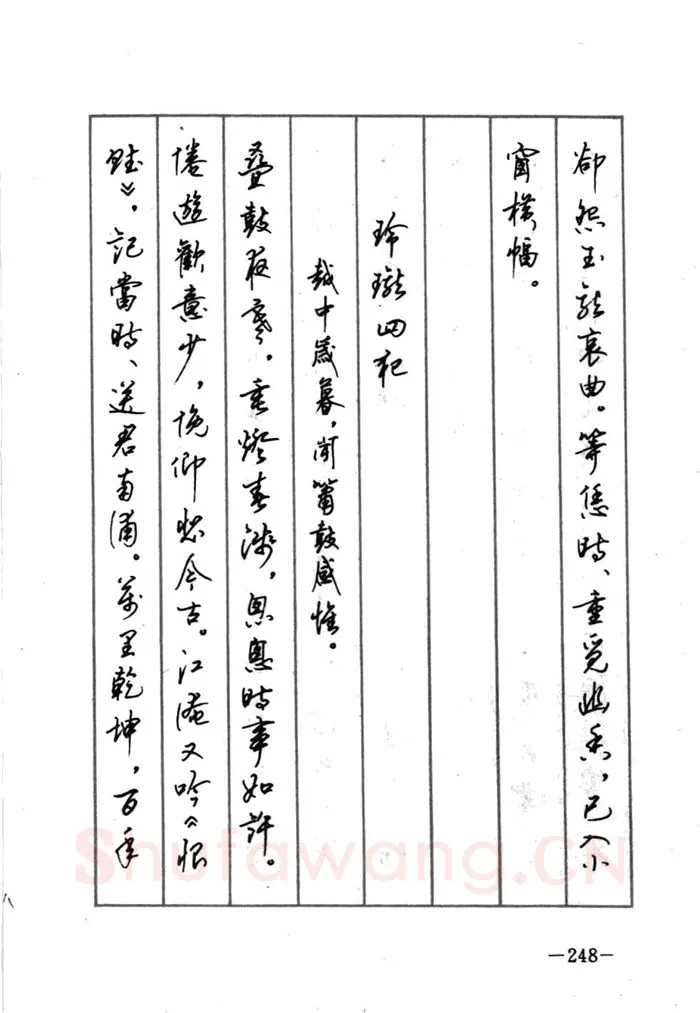 卻怨玉龍哀曲。等恁時、重覓幽香，已入小
窗橫幅。
玲瓏四犯
越中歲暮，聞簫鼓感懷。
疊鼓夜寒。垂燈春淺，悤悤時事如許。
倦遊歡意少，俛仰悲今古。江淹又吟《恨
賦》，記當時、送君南浦。萬里乾坤，百年
Shufawang.CN
—248—